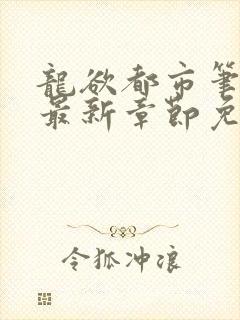 龍欲都市筆
最新章節免
令狐冲浪